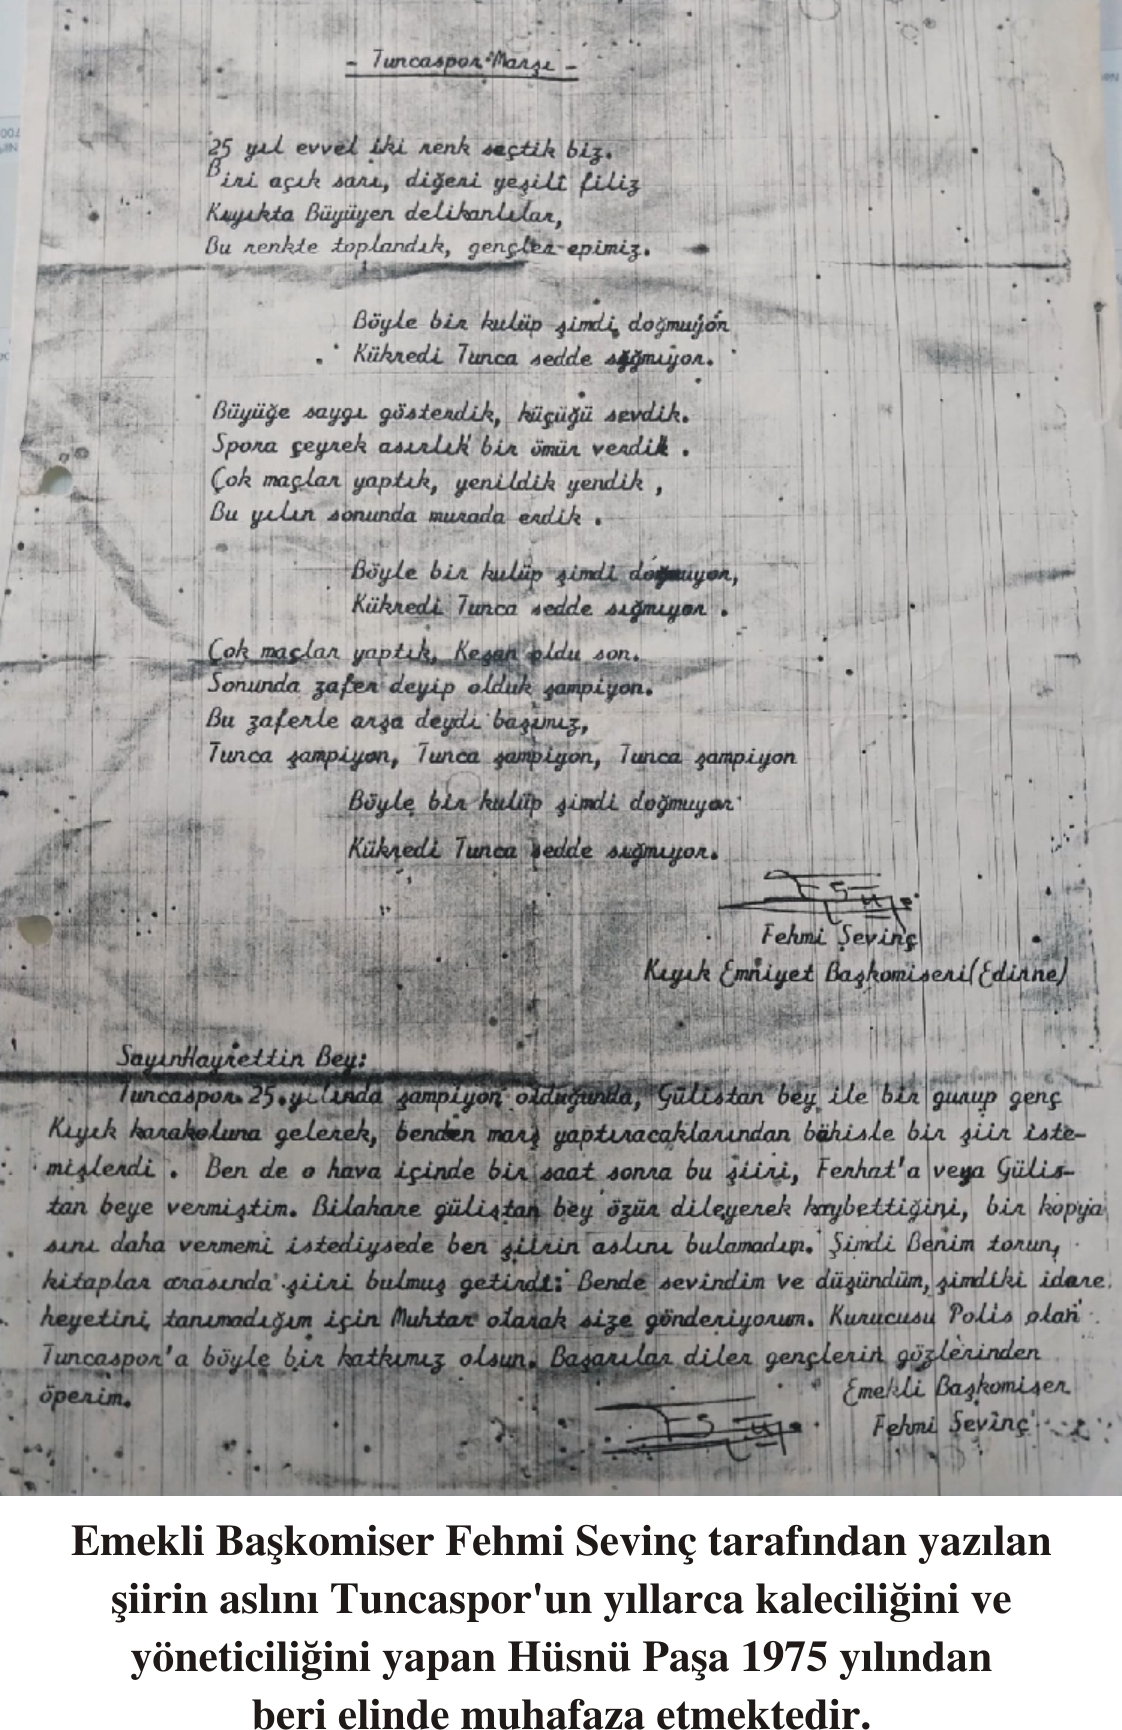 - Tuncaspor Marşı -
25 yıl evvel iki renk seçtik biz.
Biri açık sarı, diğeri yeşili filiz
Kıyıkta Büyüyen delikanlılar,
Bu renkte toplandık, gençler epimiz.
Böyle bir kulüp şimdi doğmuyor
Kükredi Tunca sedde sığmıyor.
Büyüğe saygı gösterdik, küçüğü sevdik.
Spora çeyrek asırlık bir ömür verdik.
Çok maçlar yaptık, yenildik yendik,
Bu yılın sonunda murada erdik.
Böyle bir kulüp şimdi doğmuyor,
Kükredi Tunca sedde sığmıyor.
Çok maçlar yaptık, Keşan oldu son.
Sonunda zafer deyip olduk şampiyon.
Bu zaferle arşa deydi başımız,
Tunca şampiyon, Tunca şampiyon, Tunca şampiyon
Böyle bir kulüp şimdi doğmuyor
Kükredi Tunca sedde sığmıyor.
Fehmi Sevinç
Kıyık Emniyet Başkomiseri(Edirne)
SayınHayrettin Bey:
Tuncaspor 25.yılında şampiyon olduğunda, Gülistan bey ile bir gurup genç
Kıyık karakoluna gelerek, benden marş yaptıracaklarından bahisle bir şiir iste-
mişlerdi. Ben de o hava içinde bir saat sonra bu şiiri, Ferhat'a veya Gülis-
tan beye vermiştim. Bilahare gülistan bey özür dileyerek kaybettiğini, bir kopya
sını daha vermemi istediysede ben şiirin aslını bulamadım. Şimdi Benim torun,
kitaplar arasında şiiri bulmuş getirdi: Bende sevindim ve düşündüm, şimdiki idare
heyetini tanımadığım için Muhtar olarak size gönderiyorum. Kurucusu Polis olan
Tuncaspor'a böyle bir katkımız olsun. Başarılar diler gençlerin gözlerinden
öperim.
Emekli Başkomiser
Fehmi Sevinç
Emekli Başkomiser Fehmi Sevinç tarafından yazılan
şiirin aslını Tuncaspor'un yıllarca kaleciliğini ve
yöneticiliğini yapan Hüsnü Paşa 1975 yılından
beri elinde muhafaza etmektedir.